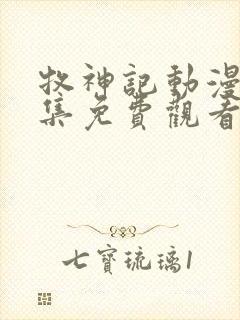 牧神記動漫
集免費觀看
七寶琉璃1